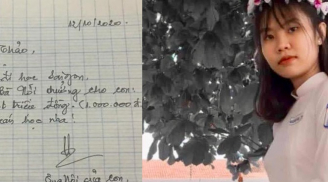 12/10/2020.
Thảo,
đi học Saigon.
Bà Nội thưởng cho con.
triệu đồng (1.000.000.đ
học nha!
Ông Nội của con.